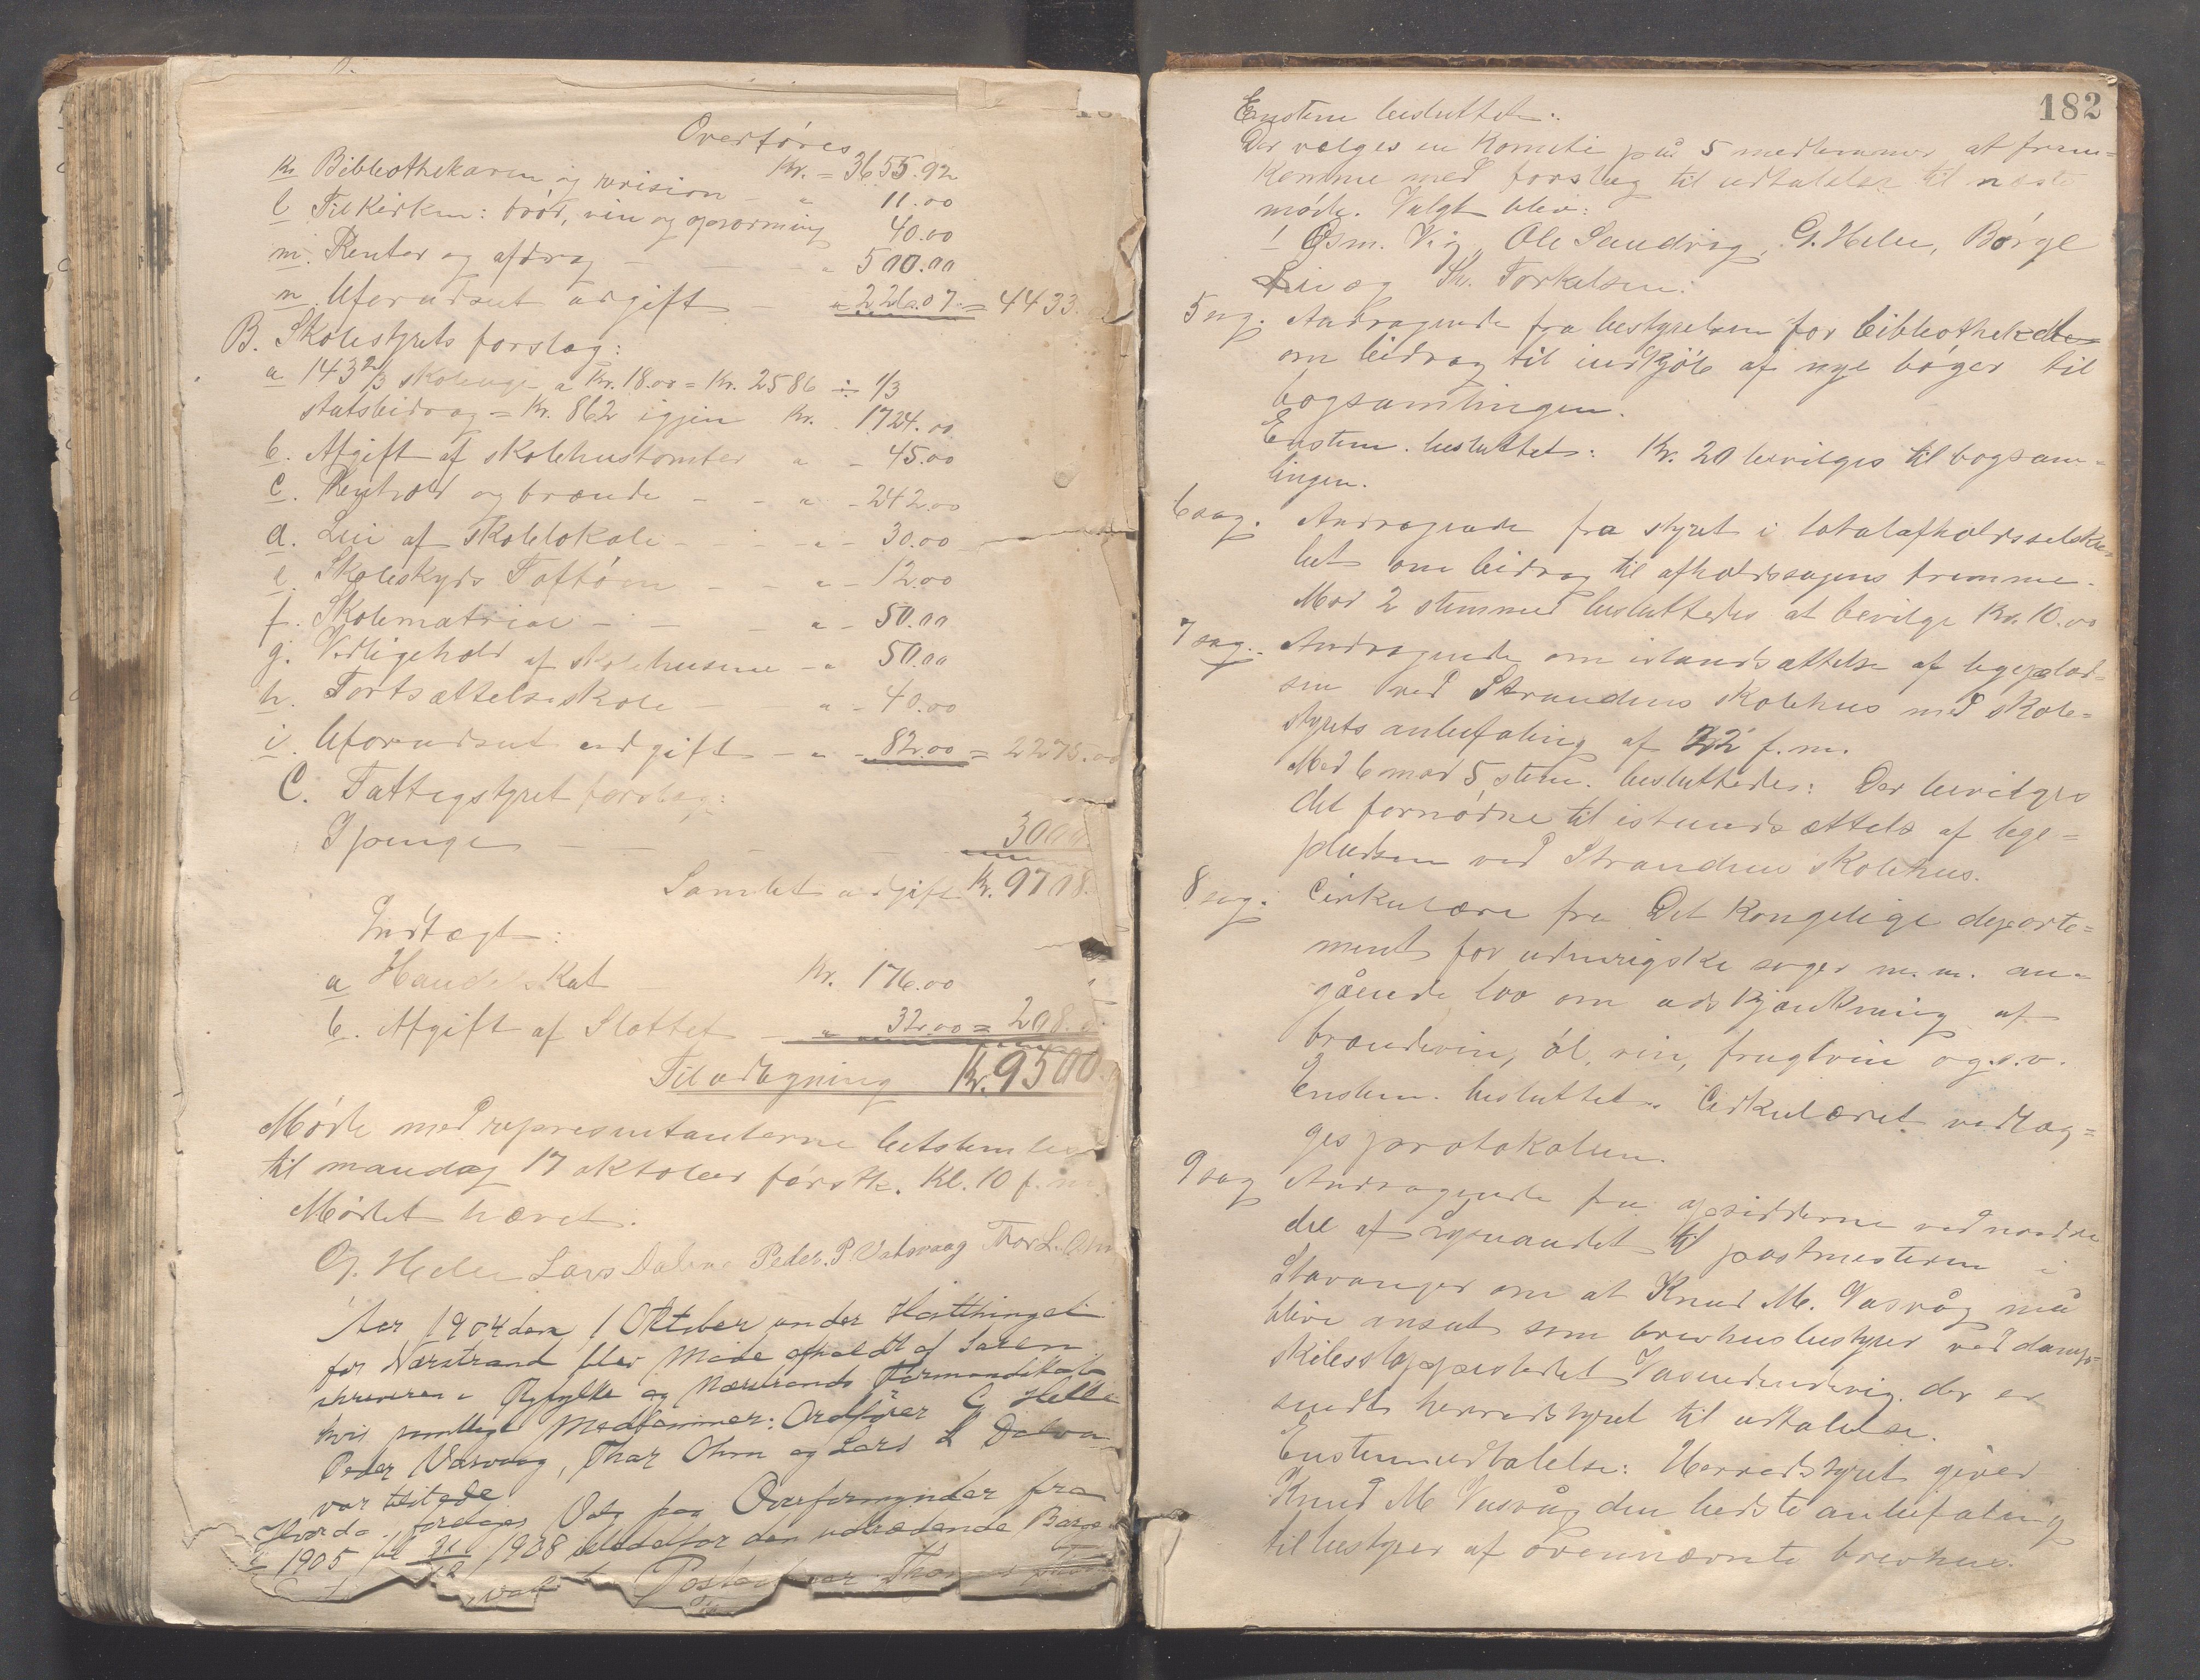 Overføres Kr. = 3655.92
k Bibliothekaren og revision - " 11.00
l Til kirken: brød, vin og opvarming 40.00
m. Renter og afdrag - - - " 500.00
n. Uforudseet udgift - " 226.07. = 4433.
B. Skolestyrets forslag:
a 143 2/3 skoleuge a Kr. 18.00 = Kr. 2586 ÷ 1/3
statsbidrag = Kr. 862 igjen Kr. 1724.00
b. Afgift af skolehustomter " - 45.00
c. Renhold og brænde - - " - 242.00
d. Leie af skolelokale - - - " - 30.00
e. Skoleskyds Toftøen - - " - 12.00
f. Skolemateriel - - - " - 50.00
g. Vedligehold af skolehusene - " 50.00
h. Fortsættelsesskole - - " - 40.00
i. Uforudseet udgift - " - 82.00 = 2275.00
C. Fattigstyret forslag:
I penge - - - - 3000.
Samlet udgift Kr. 9708.
Indtægt:
a Handelsskat Kr. 176.00
b. Afgift af Slottet - " 32.00 = 208.
Til udligning Kr. 9500.
Møde med repræsentanterne betstemtes
til mandag 17 oktober førstk. Kl. 10 f.m.
Mødet hævet.
G. Helle Lars Dalva Peder. P Vatsvaag Thor L. Ohm
Aar 1904 den 1 Oktober under Høstthinget
for Nærstrand blev Møde afholdt af Soren
skriveren i Ryfylke og Nærstrands Formandskab
hvis samtlige Medlemmer: Ordfører G Helle
Peder Vasvaag, Thor Ohm og Lars L Dalva
var tilstede
Valg paa Overformynder fra
1905 til 31/12 1908 istedetfor den udtrædende
valgt
182
Enstem besluttet:
Der velges en Komite på 5 medlemmer at frem=
komme med forslag til udtalelse til næste
møde. Valgt blev:
Osm. Vig, Ole Sandvig, G. Helle, Børge
Lie og Th. Torkelsen.
5 sag. Andragende fra bestyrelsen for bibliotheket
om bidrag til indkjøb af nye bøger til
bogsamlingen.
Enstem. besluttet: Kr. 20 bevilges til bogsam=
lingen.
6 sag. Andragende fra styret i totalafholdsselska=
bet om bidrag til afholdssagens fremme.
Mod 2 stemmer besluttedes at bevilge Kr. 10.00
7 sag. Andragende om istandsættelse af legeplad=
sen ved Strandens skolehus med skole=
styrets anbefaling af 22' f.m.
Med 6 mod 5 stem. besluttedes: Der bevilges
det fornødne til istandsættelse af lege=
pladsen ved Strandens skolehus.
8 sag. Cirkulære fra Det Kongelige departe=
ment for udenrigske sager m.m. an=
gående lov om udskjænkning af
brændevin, øl, vin, frugtvin og.s.v.
Enstem. besluttet. Cirkulæret vedlæg=
ges protokolen.
9 sag Andragende fra opsidderne ved nordre
del af sognet til postmesteren i
Stavanger om at Knud M. Vasvåg må
blive ansat som brevhusbestyrer ved damp=
skibsstoppestedet Vasendenvig, der er
sendt herredstyret til udtalelse.
Enstem udtalelse: Herredstyret giver
Knud M Vasvåg den bedste anbefaling
til bestyrer af ovennævnte brevhus.